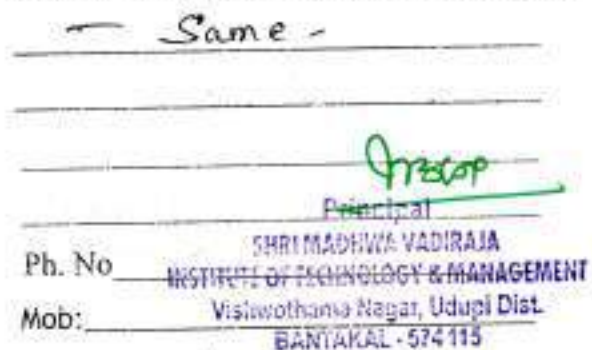 - Same -
Principal
SHRI MADHWA VADIRAJA
Ph. No
INSTITUTE OF TECHNOLOGY & MANAGEMENT
Vishwothama Nagar, Udupi Dist.
Mob:
BANTAKAL - 574115